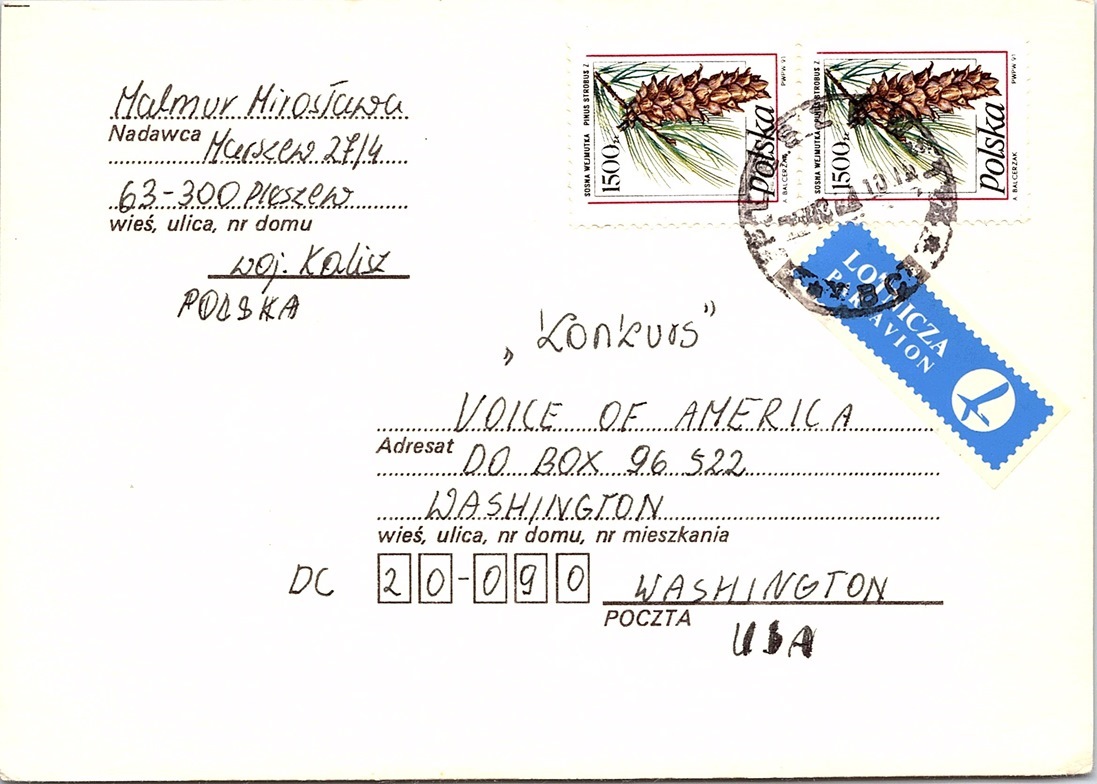 Malmur Mirosława
Nadawca
Marszew 27/4
63-300 Pleszew
wieś, ulica, nr domu
woj. Kalisz
POLSKA
SOSNA WEJMUTKA PINUS STROBUS Z
1500 zł
Polska
A. BALCERZAK
PWPW 91
SOSNA WEJMUTKA PINUS STROBUS Z
1500 zł
Polska
A. BALCERZAK
PWPW 91
LOTNICZA
PAR AVION
„Konkurs”
VOICE OF AMERICA
Adresat
DO BOX 96 522
WASHINGTON
wieś, ulica, nr domu, nr mieszkania
DC 20-090 WASHINGTON
POCZTA
USA